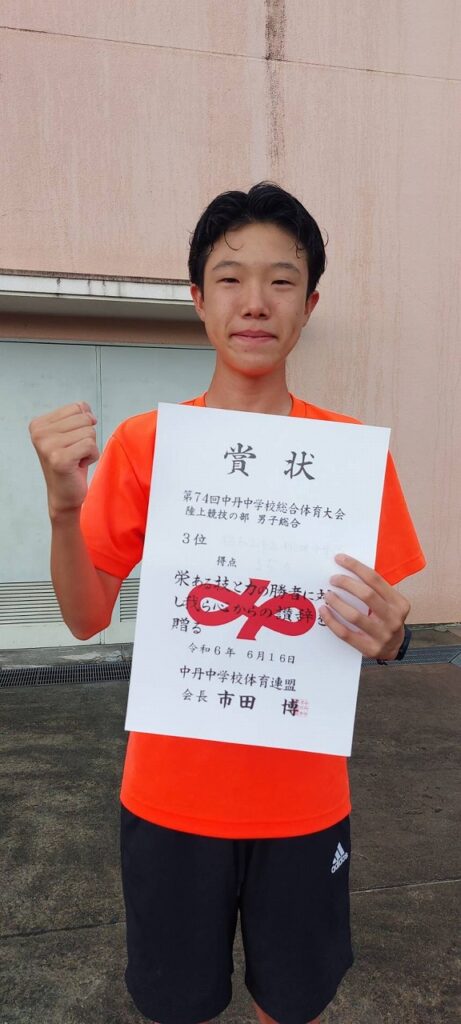 賞状
第74回中丹中学校総合体育大会
陸上競技の部 男子総合
3位
得点
栄ある技と力の勝者に対
し我ら心からの讃辞を
贈る
令和6年 6月16日
中丹中学校体育連盟
会長 市田 博
adidas